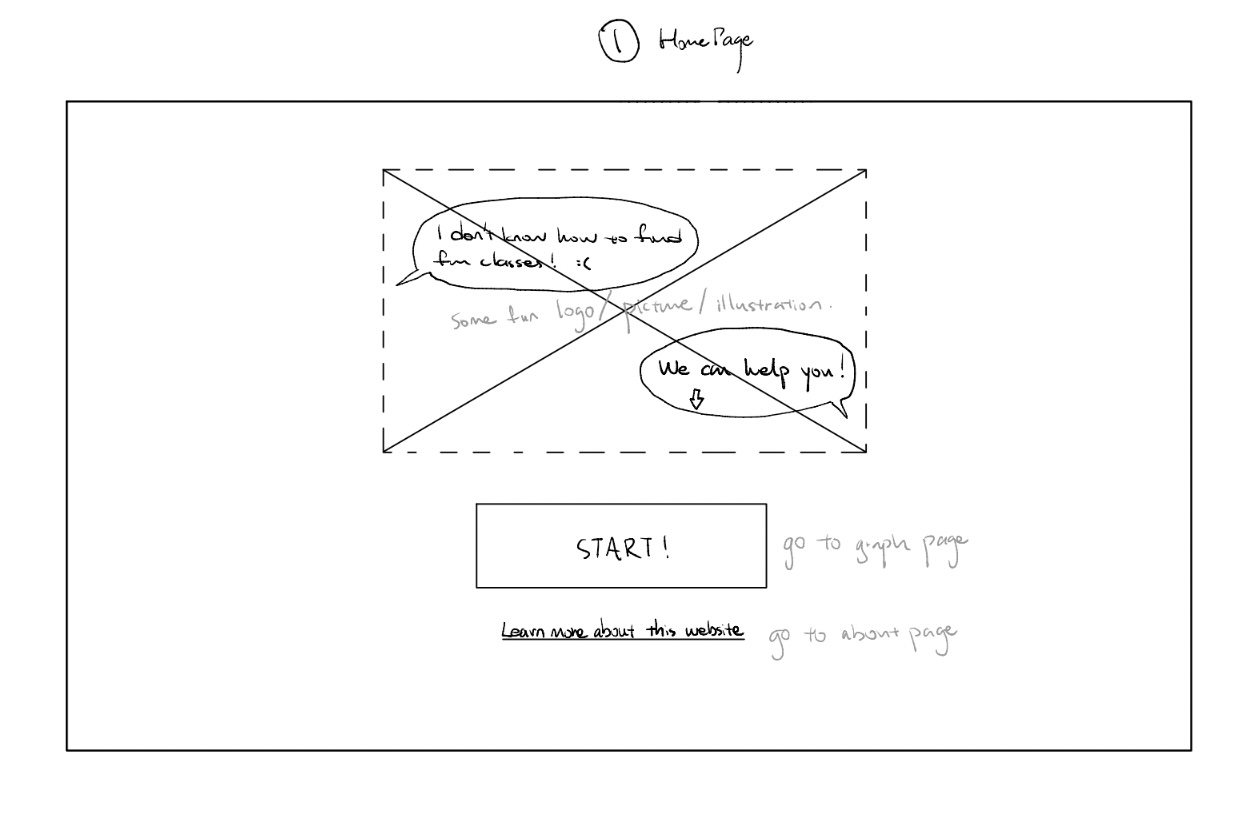 1 HomePage
I don't know how to find
fun classes! :(
some fun logo/picture/illustration.
We can help you!
START!
go to graph page
Learn more about this website
go to about page